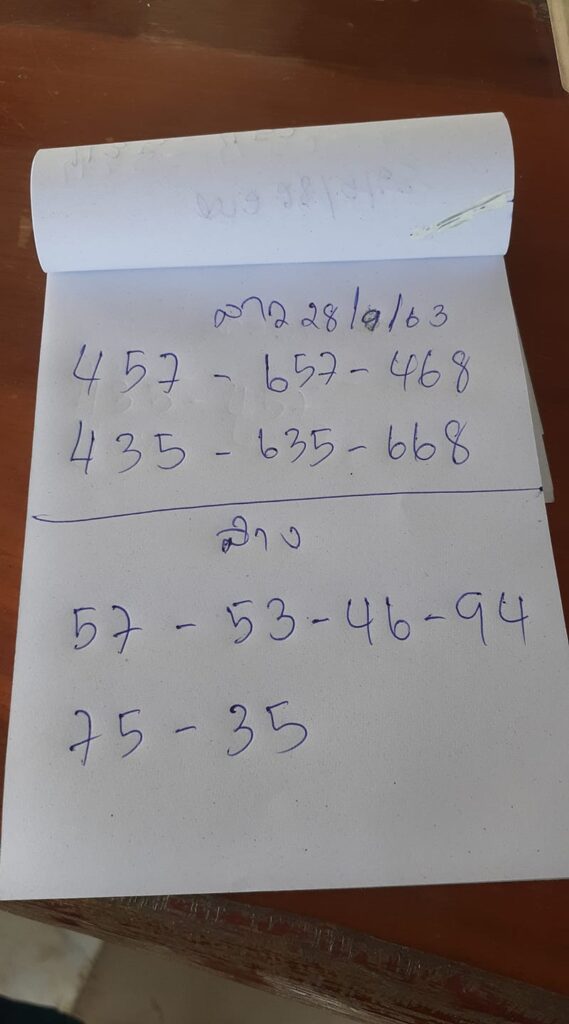 ลาว 28/9/63
457 - 657 - 468
435 - 635 - 668
ล่าง
57 - 53 - 46 - 94
75 - 35